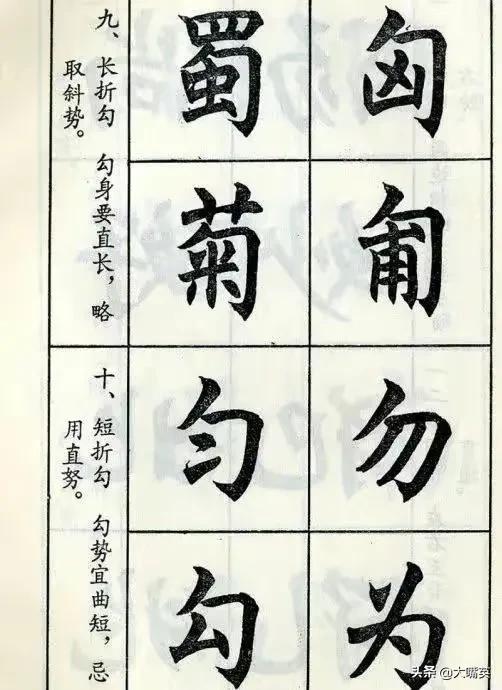 九、长折勾 勾身要直长，略
取斜势。
蜀 匈
菊 匍
十、短折勾 勾势宜曲短，忌
用直努。
匀 勿
勾 为
头条 @大嘴英